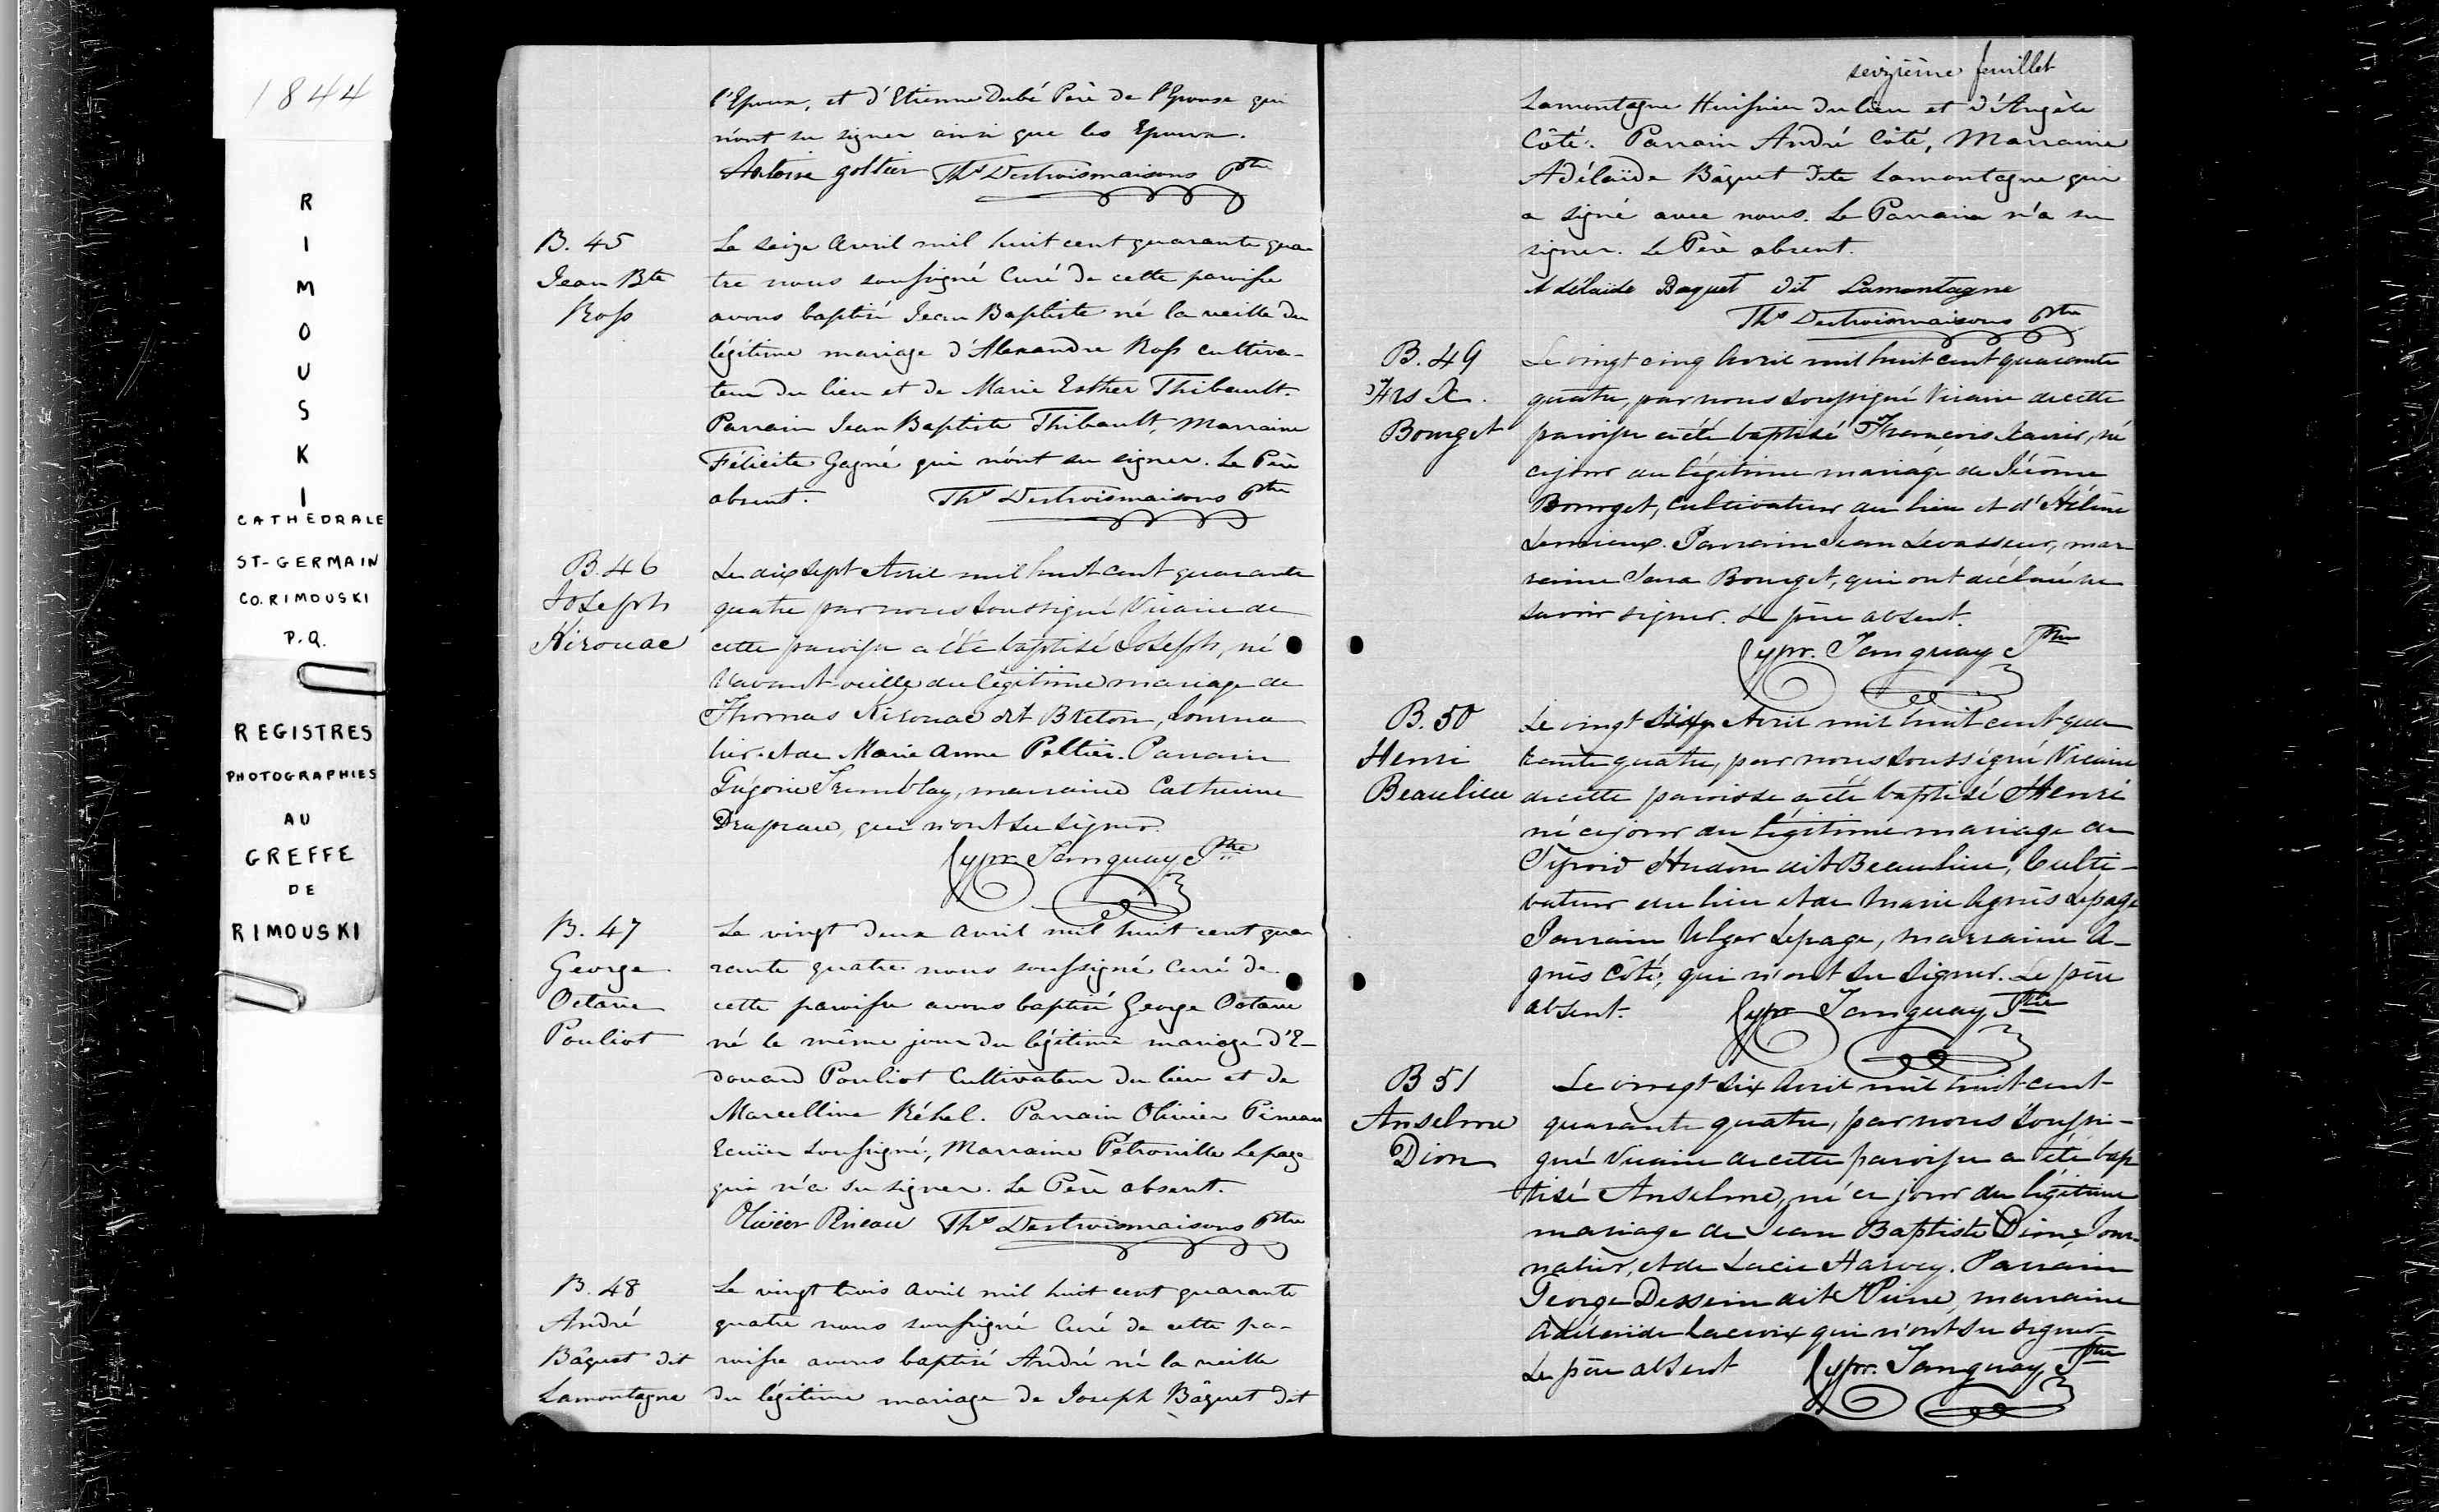 1844
R
I
M
O
U
S
K
I
CATHEDRALE
ST-GERMAIN
CO. RIMOUSKI
P.Q.
REGISTRES
PHOTOGRAPHIES
AU
GREFFE
DE
RIMOUSKI
l'Epoux, et d'Etienne Dubé Père de l'Epouse qui
n'ont su signer ainsi que les Epoux.
Antoine goltier Ths Destroismaisons Ptre
B. 45
Jean Bte
Ross
Le seize Avril mil huit cent quarante qua
tre nous soussigné Curé de cette paroisse
avons baptisé Jean Baptiste né la veille du
légitime mariage d'Alexandre Ross cultiva-
teur du lieu et de Marie Esther Thibault.
Parrain Jean Baptiste Thibault, Marraine
Félicité Gagné qui n'ont su signer. Le Père
absent. Ths Destroismaisons Ptre
B. 46
Joseph
Kirouac
Le dix sept Avril mil huit cent quarante
quatre par nous soussigné Vicaire de
cette paroisse a été baptisé Joseph, né
l'avant-veille du légitime mariage de
Thomas Kirouac dit Breton, Journa
lier et de Marie Anne Peltier. Parrain
Grégoire Tremblay, marraine Catherine
Drapeau, qui n'ont su signer.
Cypr. Tanguay Ptre
B. 47
George
Octave
Pouliot
Le vingt deux Avril mil huit cent qua
rante quatre nous soussigné Curé de
cette paroisse avons baptisé George Octave
né le même jour du légitime mariage d'E-
douard Pouliot Cultivateur du lieu et de
Marcelline Réhel. Parrain Olivier Pineau
Ecuier soussigné, Marraine Pétronille Lepage
qui n'a su signer. Le Père absent.
Olivier Pineau Ths Destroismaisons Ptre
B. 48
André
Bâquet dit
Lamontagne
Le vingt trois Avril mil huit cent quarante
quatre nous soussigné Curé de cette pa-
roisse avons baptisé André né la veille
du légitime mariage de Joseph Bâquet dit
seizième feuillet
Lamontagne Huissier du lieu et d'Angèle
Côté. Parrain André Côté, Marraine
Adélaïde Bâquet dite Lamontagne qui
a signé avec nous. Le Parrain n'a su
signer. Le Père absent.
Adélaide Baquet dit Lamontagne
Ths Destroismaisons Ptre
B. 49
Frs X.
Bourget
Le vingt cinq Avril mil huit cent quarante
quatre, par nous soussigné Vicaire de cette
paroisse a été baptisé François Xavier, né
ce jour du légitime mariage de Jérôme
Bourget, Cultivateur du lieu et d'Hélène
Lemieux. Parrain Jean Levasseur, mar
raine Sara Bourget, qui ont déclaré ne
savoir signer. Le père absent.
Cypr. Tanguay Ptre
B. 50
Henri
Beaulieu
Le vingt six Avril mil huit cent qua
rante quatre, par nous soussigné Vicaire
de cette paroisse a été baptisé Henri
né ce jour du légitime mariage de
Hudon dit Beaulieu, Culti-
vateur du lieu et de Marie Agnès Lepage
Parrain Ulger Lepage, marraine A-
gnès Côté, qui n'ont su signer. Le père
absent. Cypr Tanguay Ptre
B 51
Anselme
Dion
Le vingt six Avril mil huit cent
quarante quatre, par nous soussi-
gné Vicaire de cette paroisse a été bap
tisé Anselme, né ce jour du légitime
mariage de Jean Baptiste Dion, Jour-
nalier, et de Lucie Harvey. Parrain
George Dessein dit St Pierre, marraine
Adélaïde Lacroix qui n'ont su signer
Le père absent Cypr. Tanguay Ptre